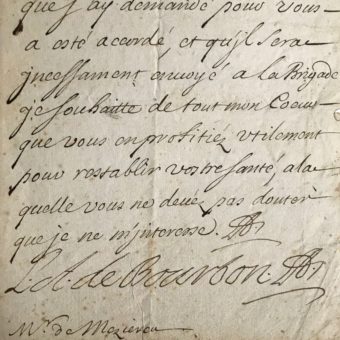 que j'ay demandé pour vous
a osté acordé, et qu'jl sera
jncessament envoyé a la Brigade
je souhaitte de tout mon Coeur
que vous en profitiez vtilement
pour restablir vostre santé, a la
quelle vous ne devez pas douter
que je ne m'jnteresse.
L. A. de Bourbon.
Mr. de Mezieres